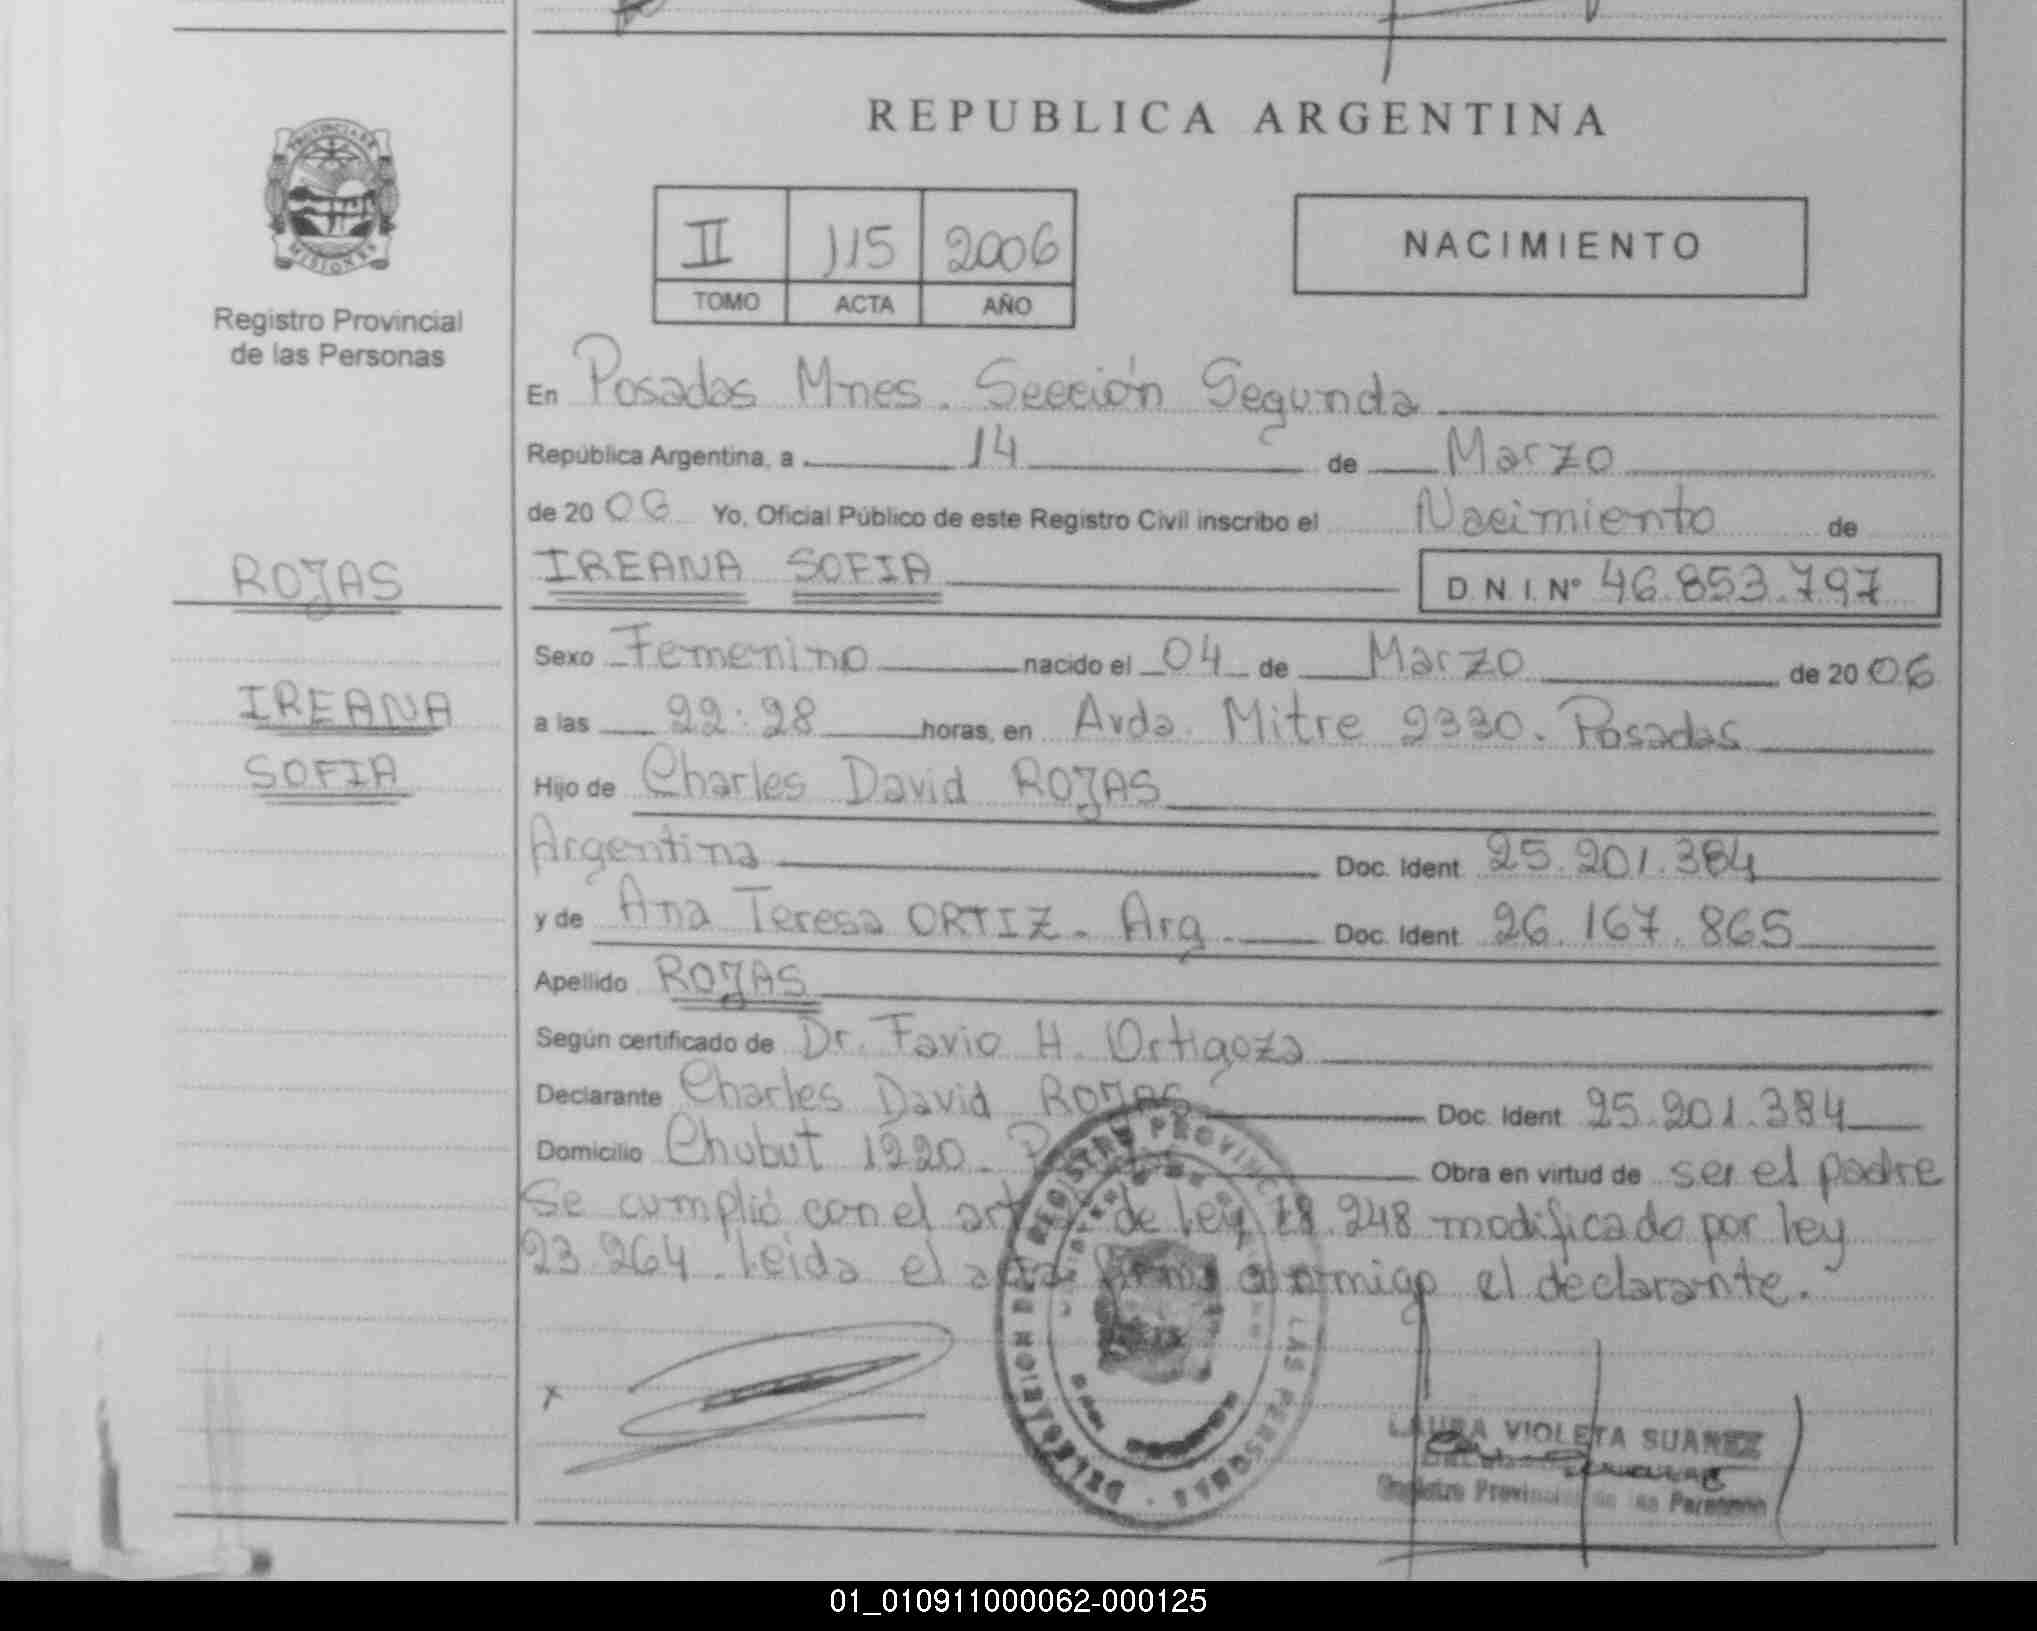 REPUBLICA ARGENTINA
PROVINCIA DE
MISIONES
Registro Provincial
de las Personas
II 115 2006
TOMO ACTA AÑO
NACIMIENTO
En Posadas Mnes. Sección Segunda
República Argentina, a 14 de Marzo
de 2006 Yo, Oficial Público de este Registro Civil inscribo el Nacimiento de
ROJAS
IREANA SOFIA D.N.I. Nº 46.853.797
Sexo Femenino nacido el 04 de Marzo de 2006
IREANA
a las 22:28 horas, en Avda. Mitre 2330. Posadas
SOFIA
Hijo de Charles David ROJAS
Argentina Doc. Ident 25.201.384
y de Ana Teresa ORTIZ. Arg. Doc. Ident 26.167.865
Apellido ROJAS
Según certificado de Dr. Favio H. Ortigoza
Declarante Charles David ROJAS Doc. Ident 25.201.384
Domicilio Chubut 1220. Obra en virtud de ser el padre
Se cumplió con el art de ley 18.248 modificado por ley
23.264. Leida el acta firma conmigo el declarante.
x
LAURA VIOLETA SUAREZ
Registro Provincial de las Personas
01_010911000062-000125